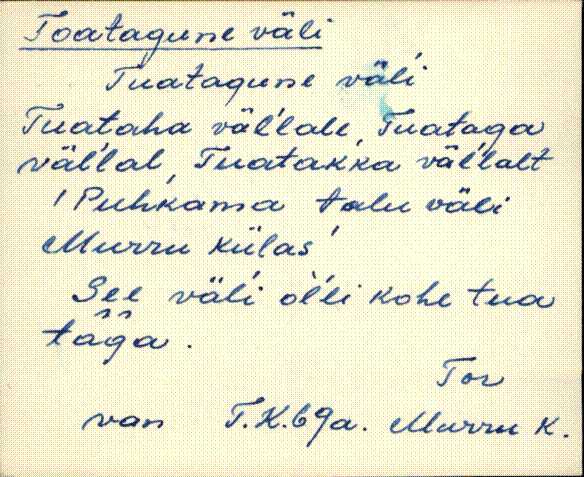 Toatagune väli
Tuatagune väĺi
Tuataha väĺlale, Tuataga
väĺlal, Tuatakka väĺlalt
'Puhkama talu väli
Murru külas'
See väĺi oĺli kohe tua
taga.
Tor
van T.K.69a. Murru K.